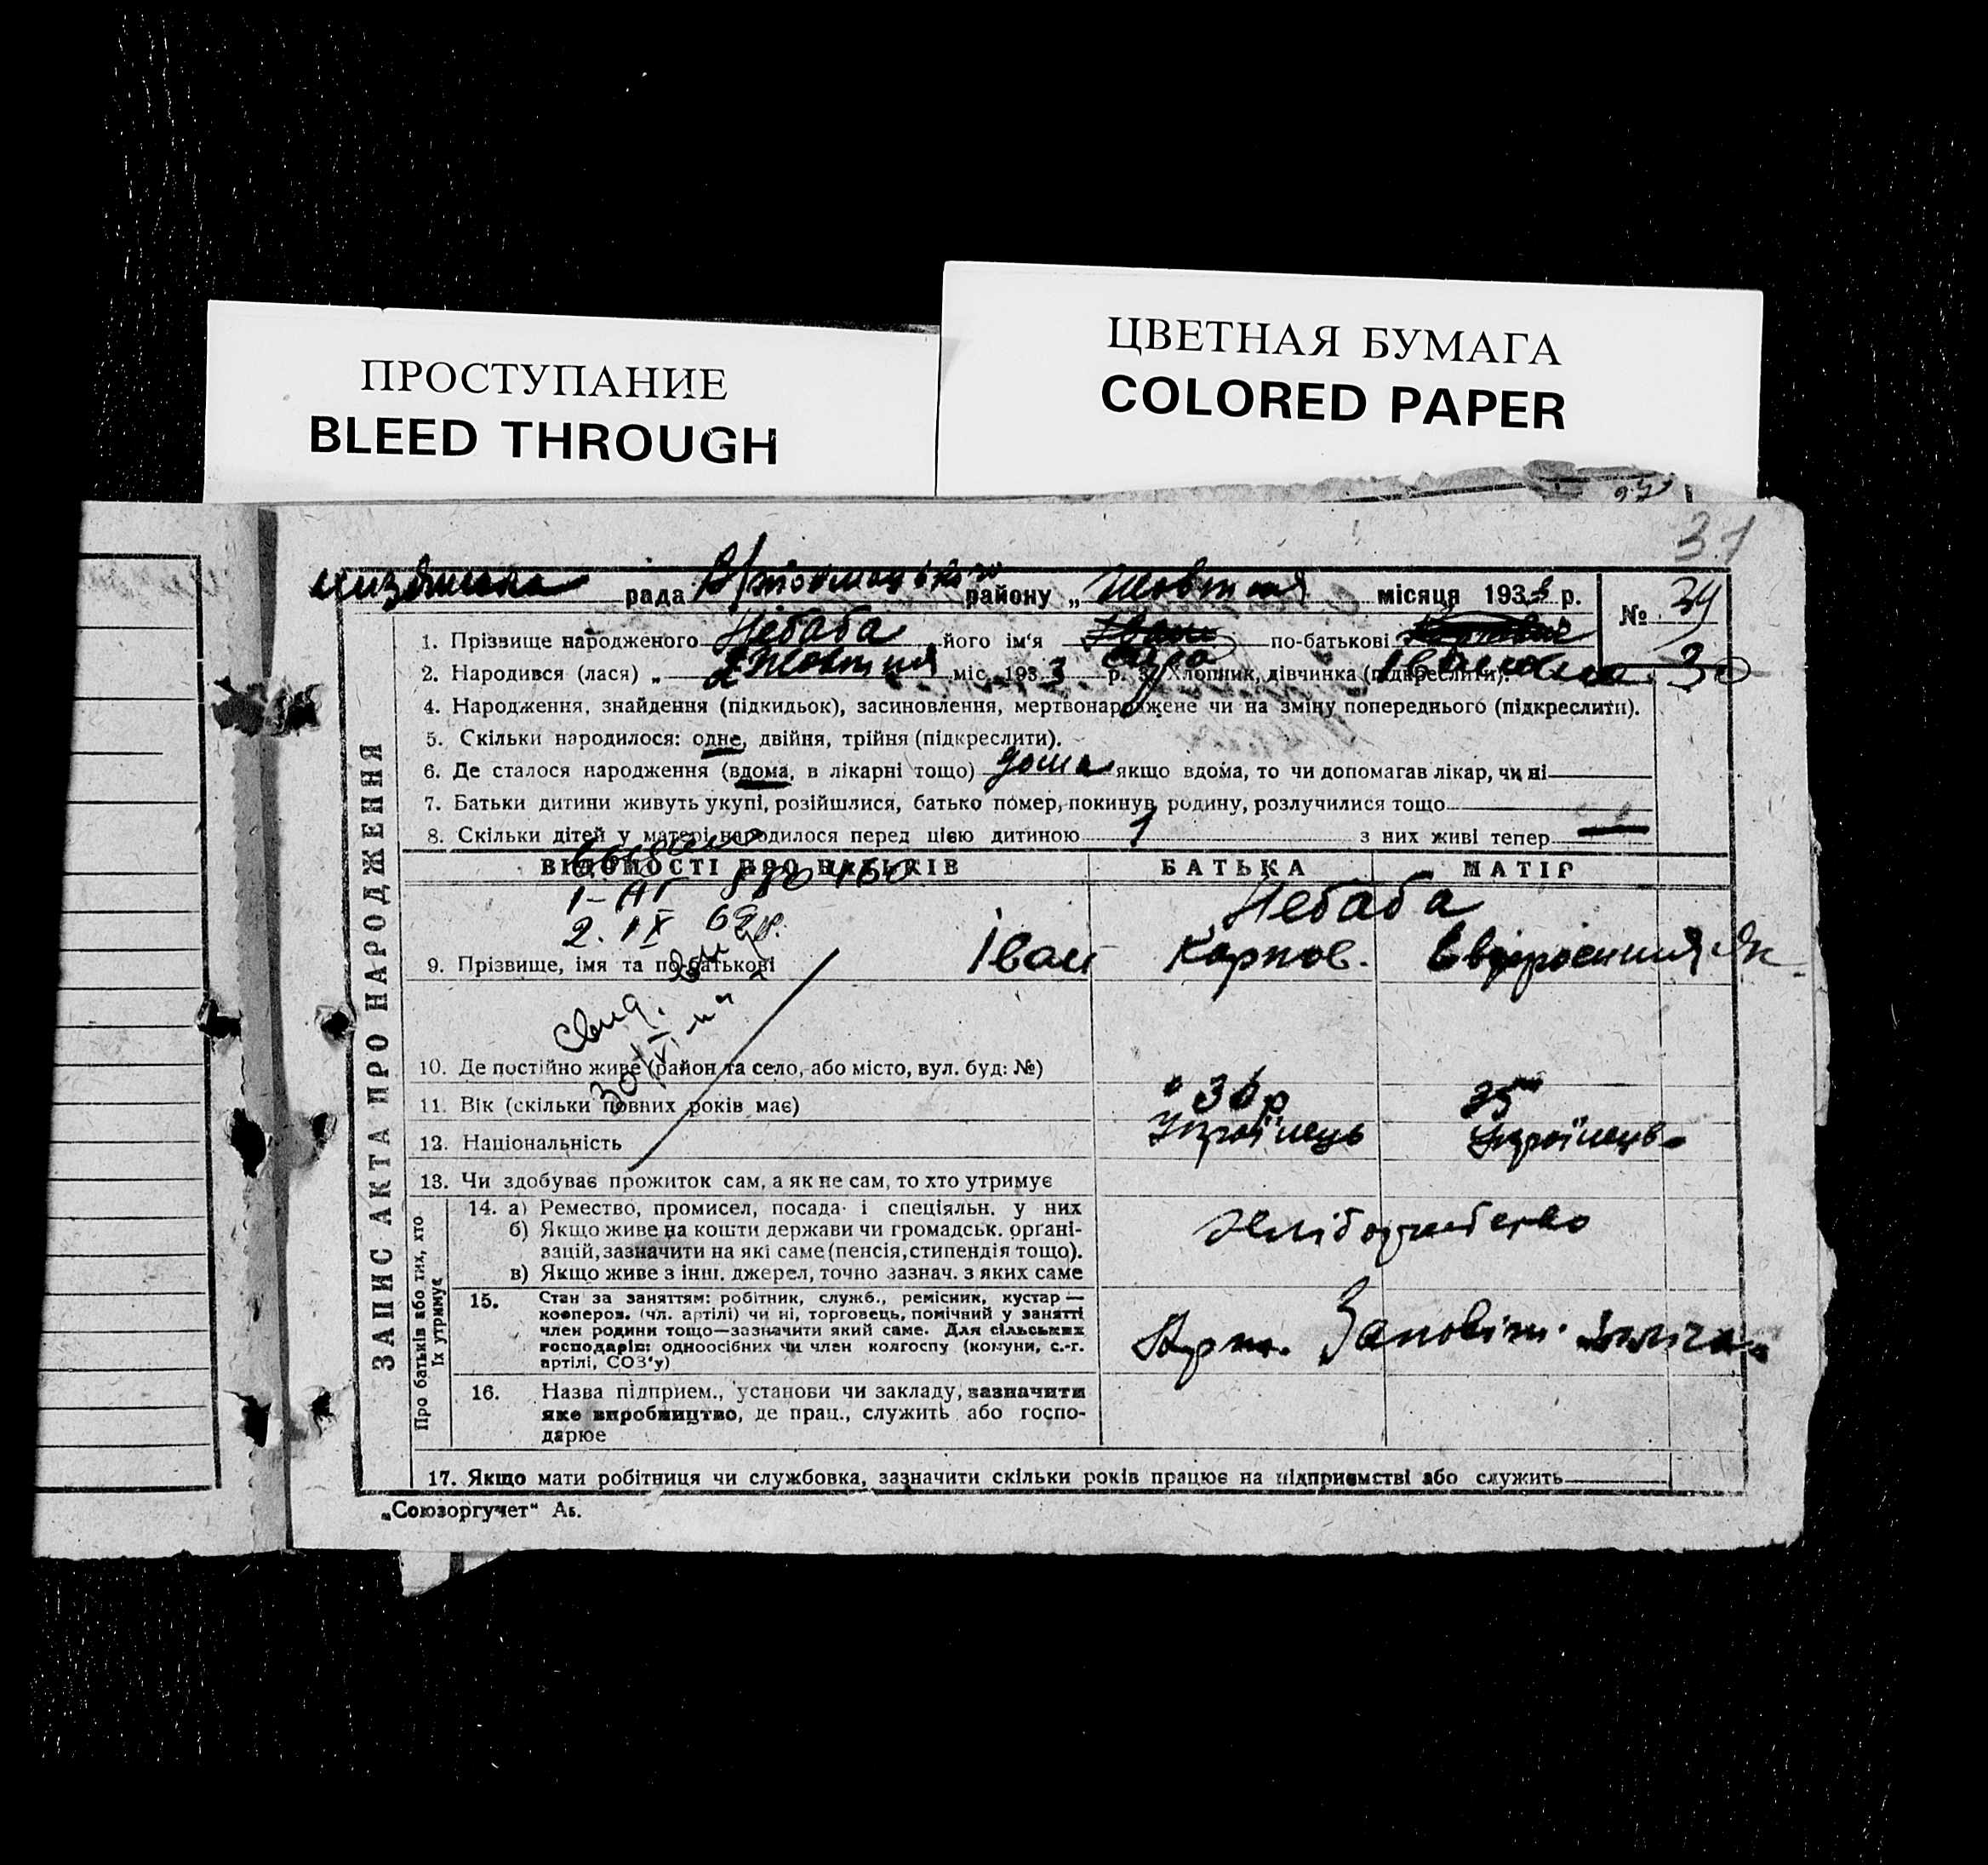 ПРОСТУПАНИЕ
BLEED THROUGH
ЦВЕТНАЯ БУМАГА
COLORED PAPER
31
рада В/токмацького району „ Жовтня місяця 1933 р.
№ 34
1. Прізвище народженого Небаба його ім‘я Іван по-батькові
2. Народився (лася) „ 2 Жовтня міс. 193 3 р. 3. Хлопчик, дівчинка (підкреслити). Івановна 30
4. Народження, знайдення (підкидьок), засиновлення, мертвонароджене чи на зміну попереднього (підкреслити).
5. Скільки народилося: одне, двійня, трійня (підкреслити).
6. Де сталося народження (вдома, в лікарні тощо) дома якщо вдома, то чи допомагав лікар, чи ні
7. Батьки дитини живуть укупі, розійшлися, батько помер, покинув родину, розлучилися тощо
8. Скільки дітей у матері народилося перед цією дитиною 1 з них живі тепер
ЗАПИС АКТА ПРО НАРОДЖЕННЯ
ВІДОМОСТІ ПРО БАТЬКІВ БАТЬКА МАТІР
1-АГ
2. IX 69г.
Небаба
9. Прізвище, імя та по-батькові Іван Карпов.
свид.
10. Де постійно живе (район та село, або місто, вул. буд: №)
11. Вік (скільки повних років має) 36р 35
12. Національність Українець Українець
13. Чи здобуває прожиток сам, а як не сам, то хто утримує
Про батьків або тих, хто їх утримує
14. а) Ремество, промисел, посада і спеціяльн. у них
б) Якщо живе на кошти держави чи громадськ. органі-
зацій, зазначити на які саме (пенсія, стипендія тощо).
в) Якщо живе з інш. джерел, точно зазнач. з яких саме
Хліборобство
15. Стан за заняттям: робітник, служб., ремісник, кустар —
кооперов. (чл. артілі) чи ні, торговець, помічний у занятті
член родини тощо—зазначити який саме. Для сільських
господарів: одноосібних чи член колгоспу (комуни, с.-г.
артілі, СОЗ‘у)
Арт. Заповіт Ілліча
16. Назва підприєм., установи чи закладу, зазначити
яке виробництво, де прац., служить або госпо-
дарює
17. Якщо мати робітниця чи службовка, зазначити скільки років працює на підприємстві або служить
„Союзоргучет“ Аб.